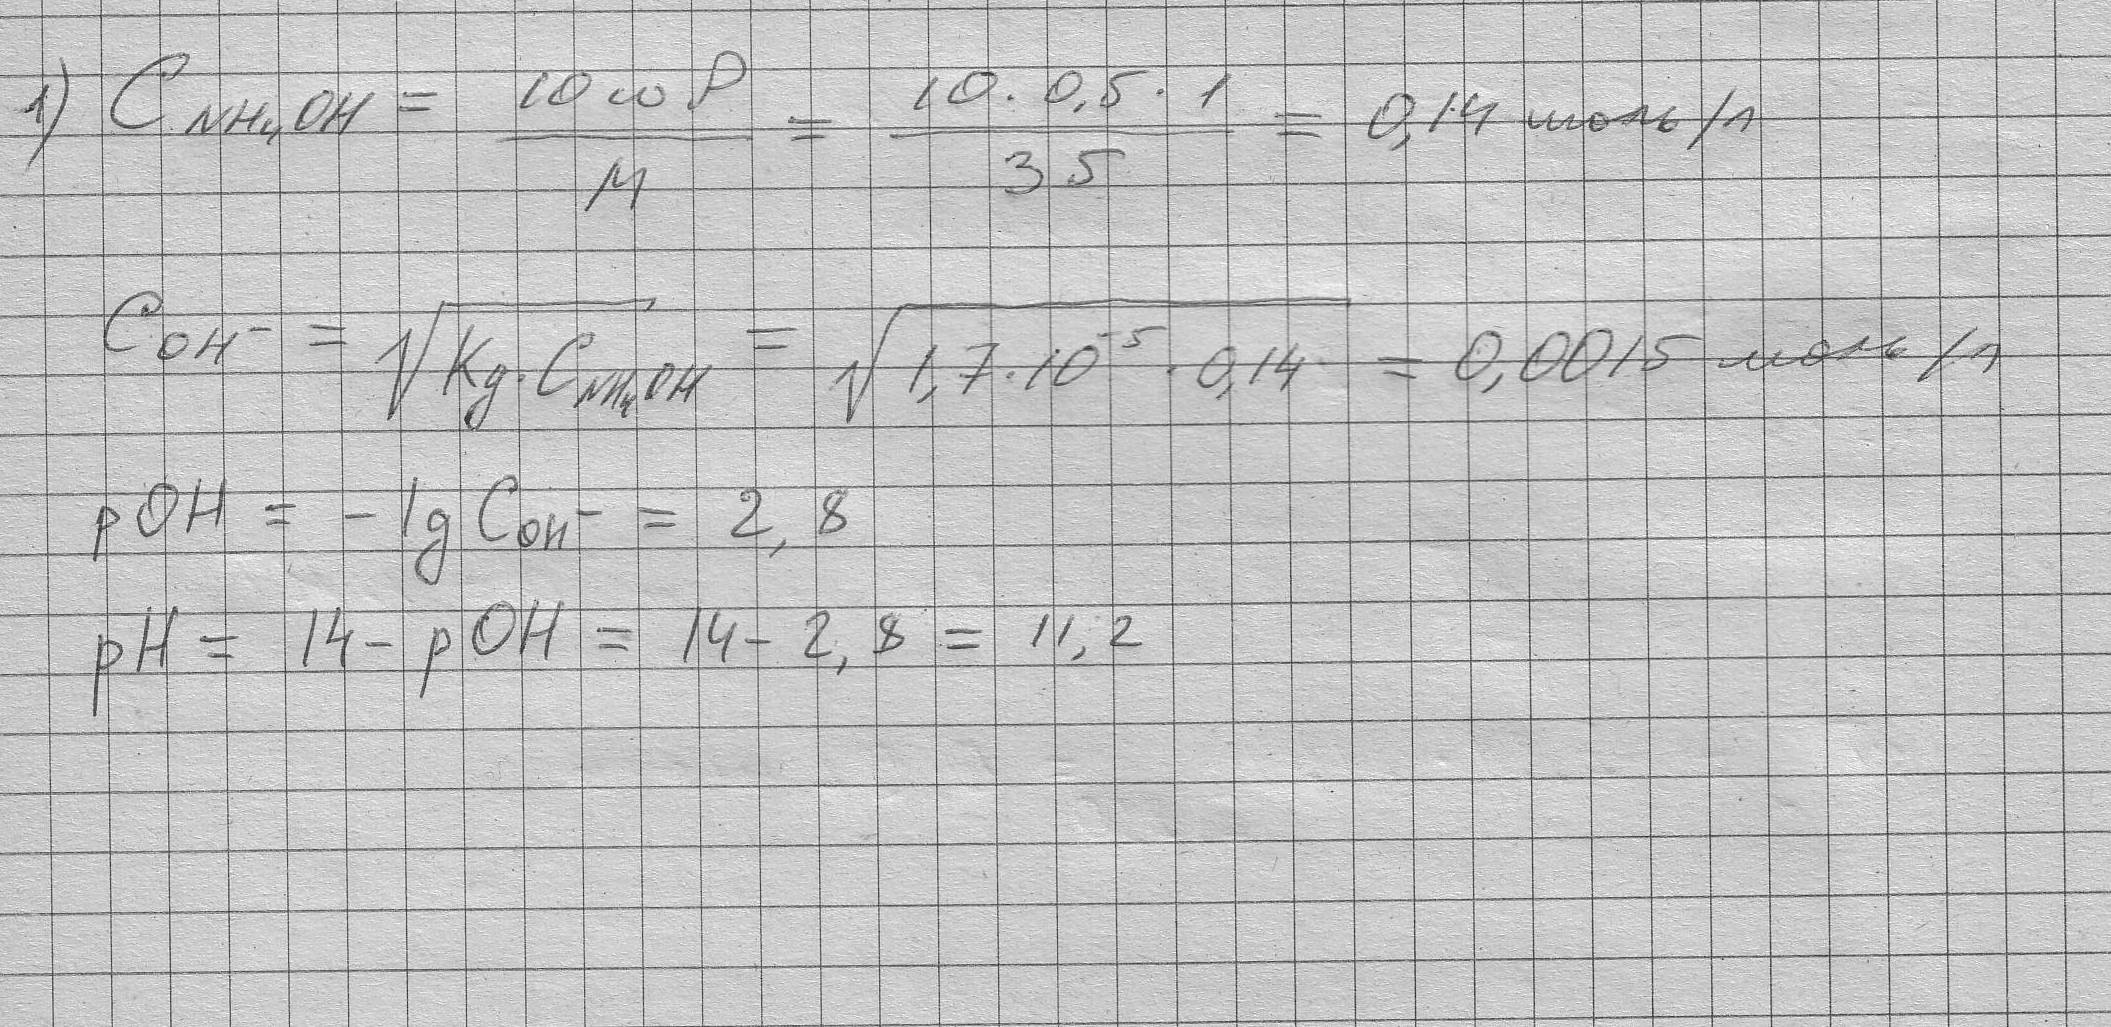 1) C NH₄OH = 10 ω ρ / M = 10 · 0,5 · 1 / 35 = 0,14 моль/л
C OH⁻ = √Kд · C NH₄OH = √1,7 · 10⁻⁵ · 0,14 = 0,0015 моль/л
pOH = - lg C OH⁻ = 2,8
pH = 14 - pOH = 14 - 2,8 = 11,2